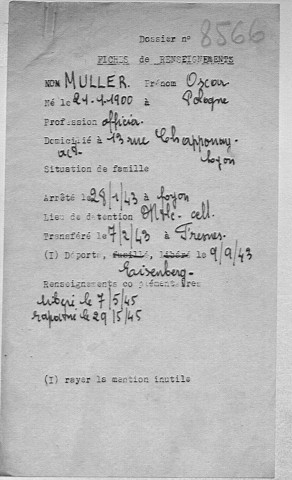 Dossier n° 8566
FICHES de RENSEIGNEMENTS
NOM MULLER. Prénom Oscar
Né le 21-1-1900 à Pologne
Profession officier.
Domicilié à 13 rue Chapponay-
Lyon
Situation de famille
Arrêté le 28/1/43 à Lyon
Lieu de détention Mtlc - cell.
Transféré le 7/2/43 à Fresnes.
(I) Déporté, fusillé, libéré le 9/9/43
Eisenberg-
Renseignements complémentaires
libéré le 7/5/45
rapatrié le 29/5/45
(I) rayer la mention inutile